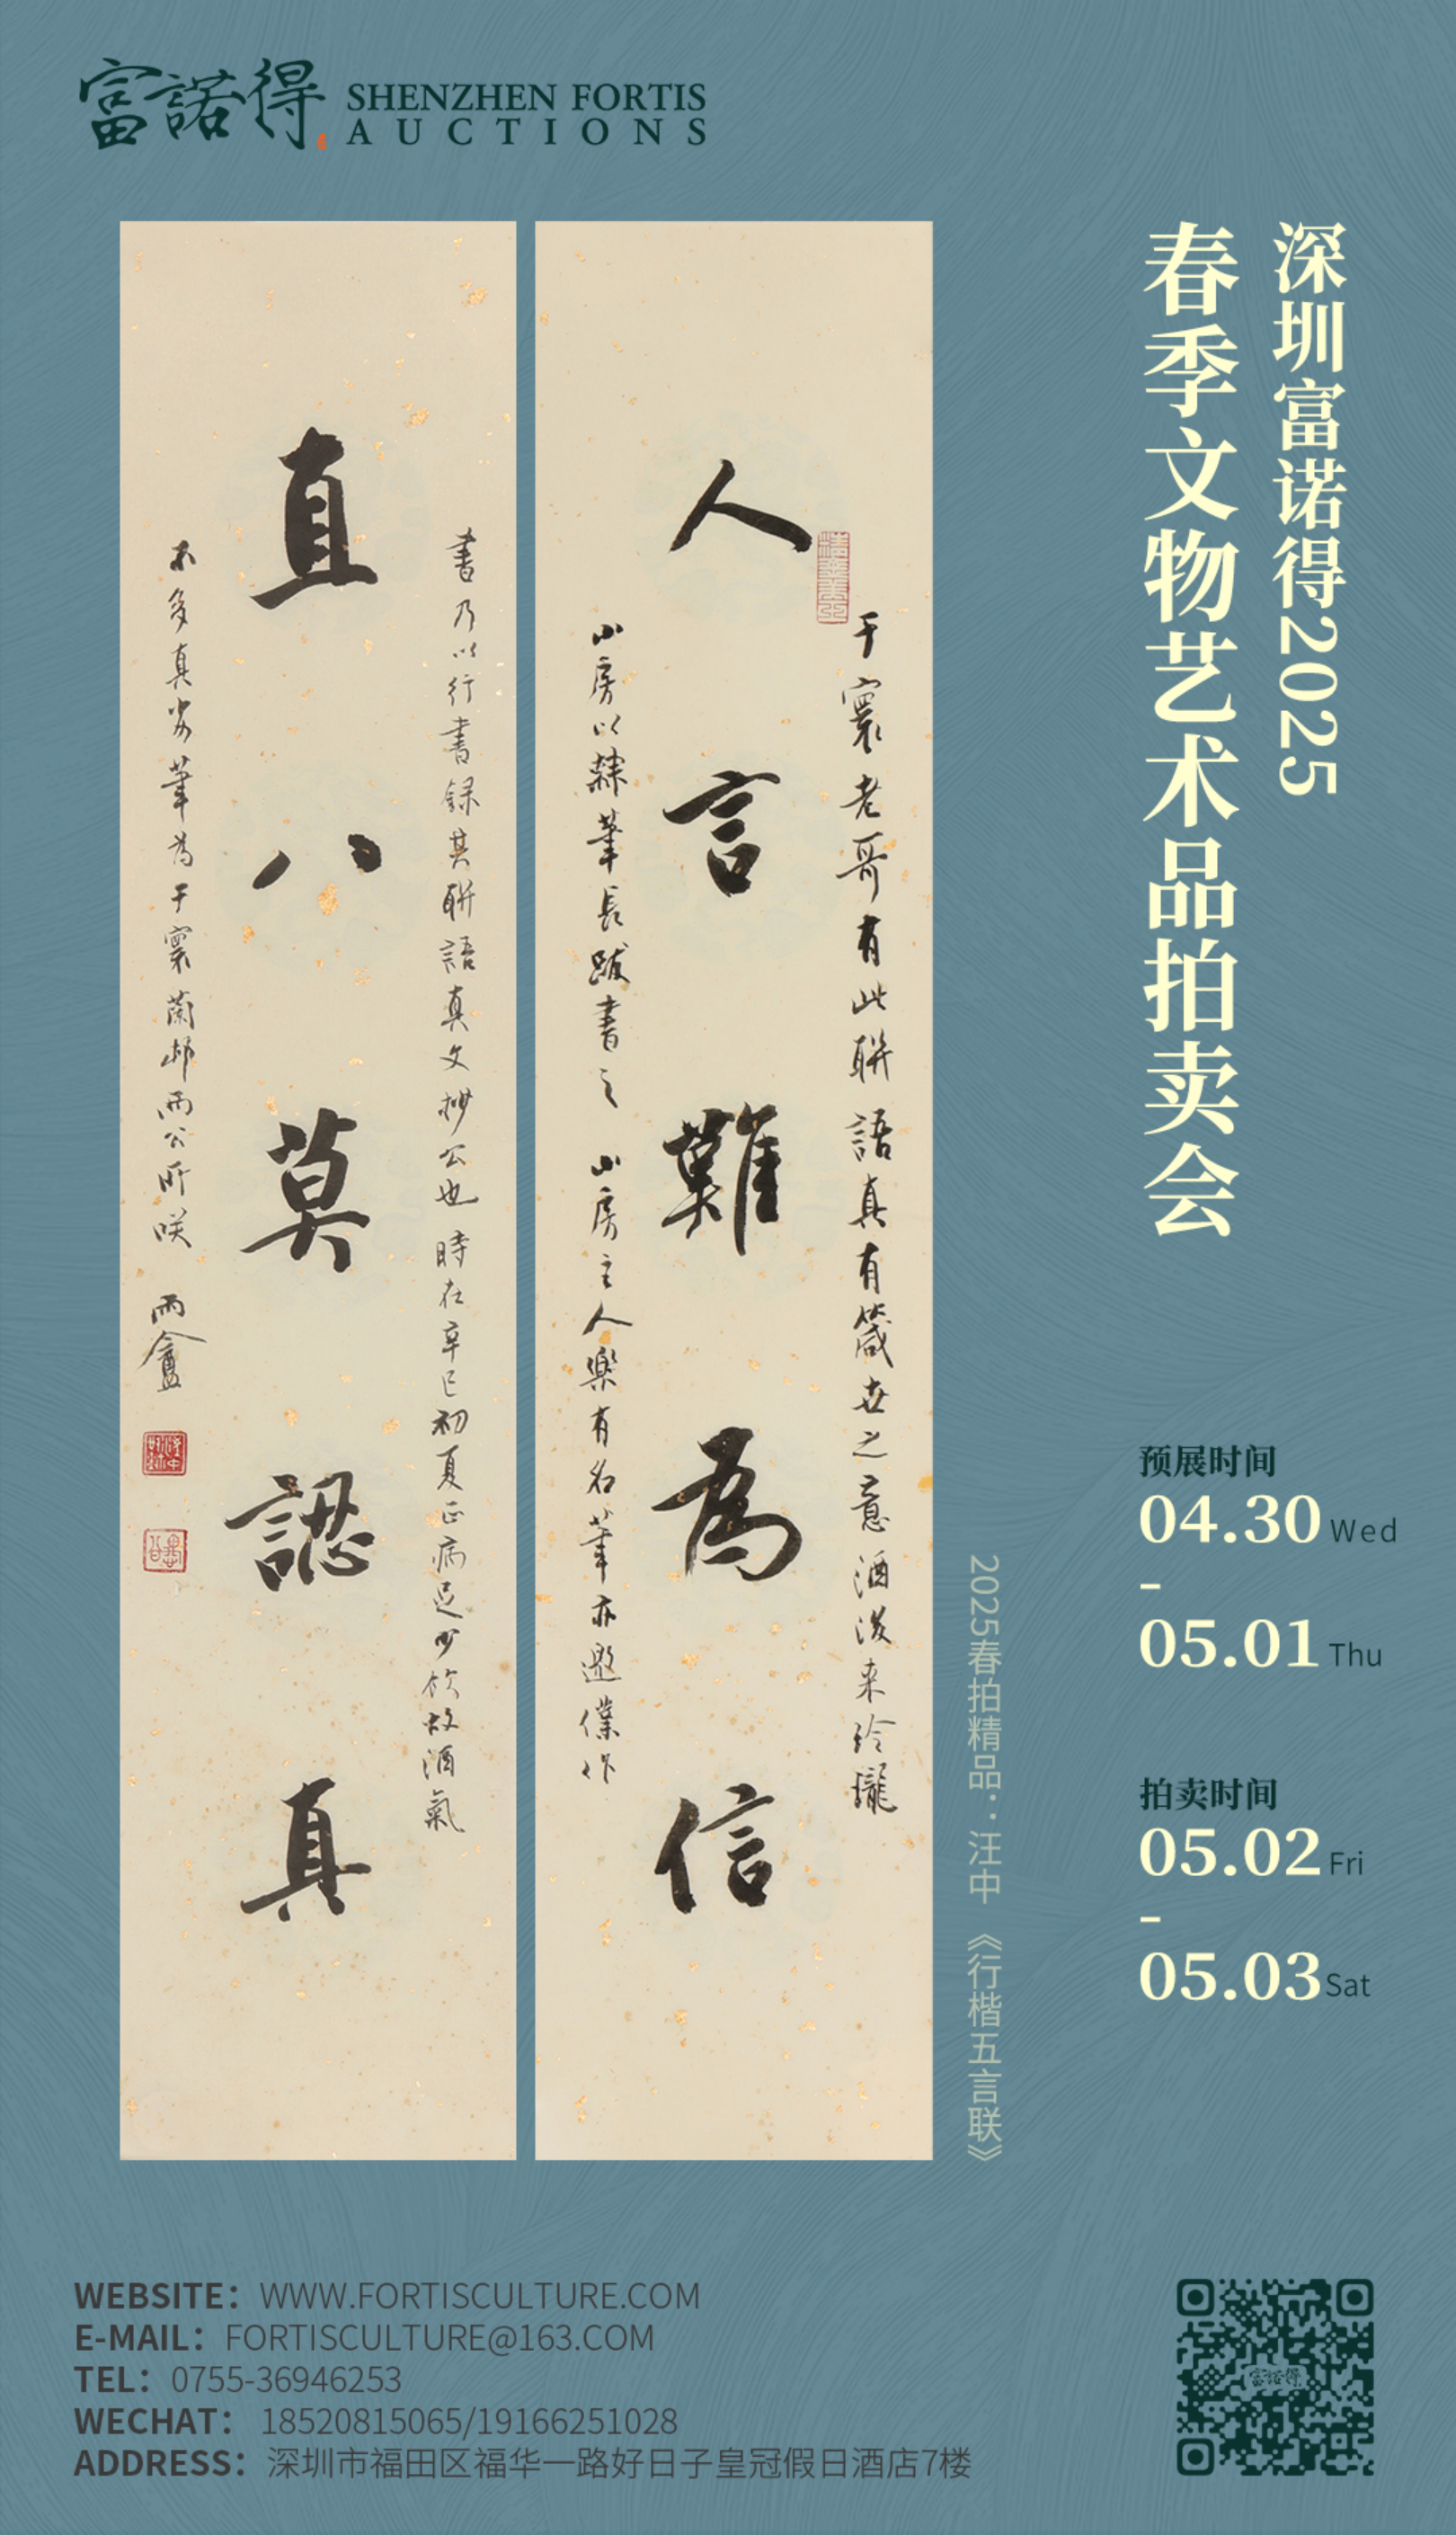 富諾得
SHENZHEN FORTIS
AUCTIONS
深圳富诺得2025
春季文物艺术品拍卖会
人言難為信
于寰老哥有此聯語真有箴世之意酒後来玲瓏
小房以隸筆長跋書之小房主人樂有名筆亦邀僕作
直八莫認真
書乃以行書録其聯語真文抄公也時在辛巳初夏正病足少飲故酒氣
不多真劣筆為于寰蘭邨兩公所咲 雨盦
2025春拍精品：汪中 《行楷五言联》
预展时间
04.30 Wed
-
05.01 Thu
拍卖时间
05.02 Fri
-
05.03 Sat
WEBSITE：WWW.FORTISCULTURE.COM
E-MAIL：FORTISCULTURE@163.COM
TEL：0755-36946253
WECHAT：18520815065/19166251028
ADDRESS：深圳市福田区福华一路好日子皇冠假日酒店7楼
富諾得